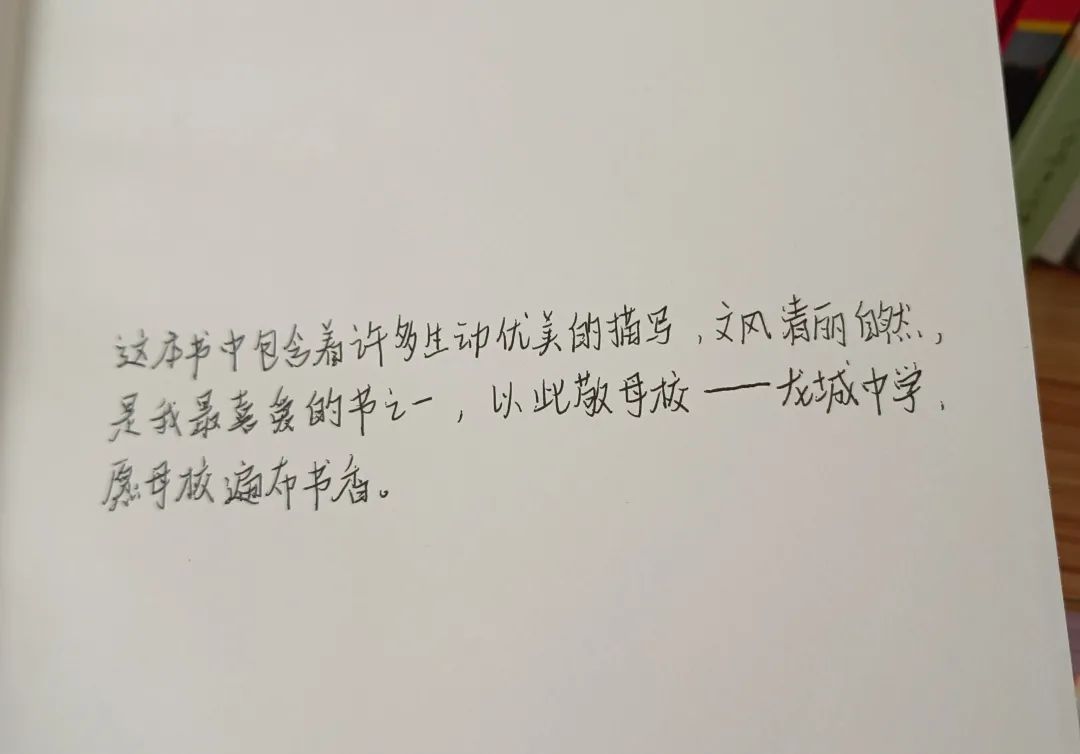 这本书中包含着许多生动优美的描写，文风清丽自然，
是我最喜爱的书之一，以此敬母校——龙城中学，
愿母校遍布书香。